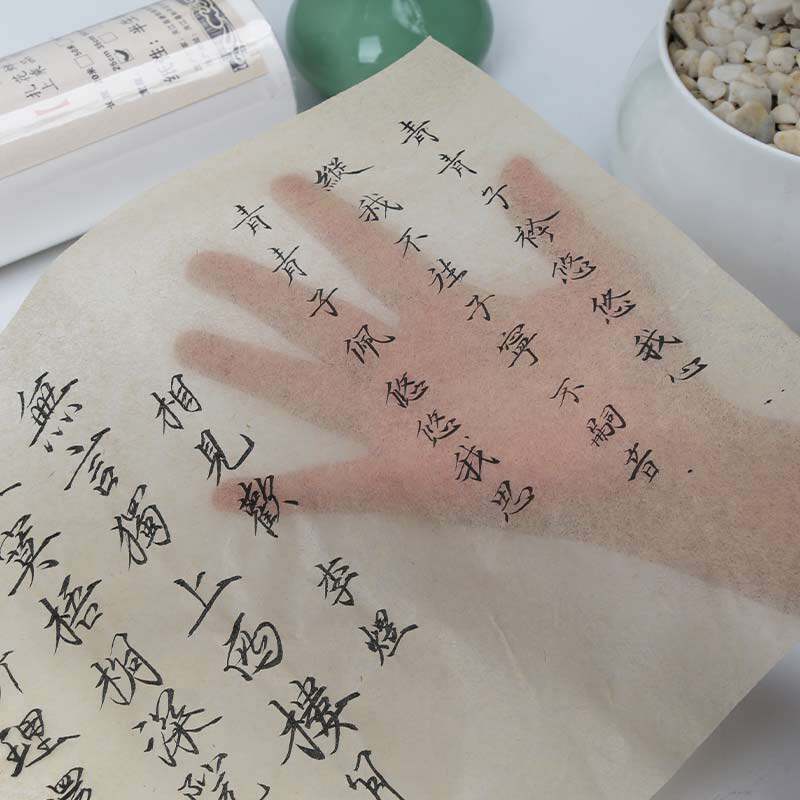 青青子衿悠悠我心
縱我不往子寧不嗣音
青青子佩悠悠我思
相見歡 李煜
無言獨上西樓月
寞梧桐深院
理還
半生